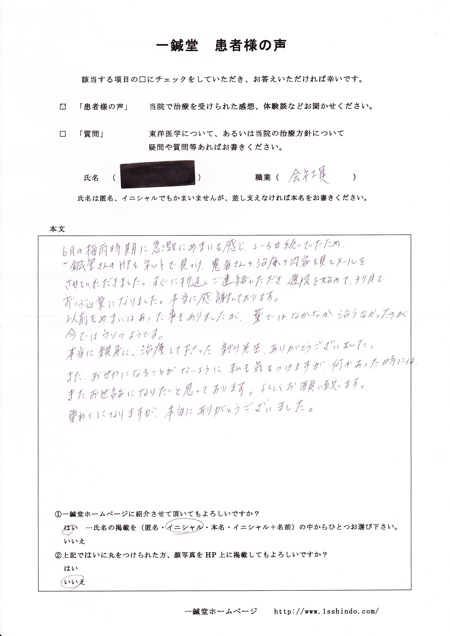 一鍼堂 患者様の声
該当する項目の□にチェックをしていただき、お答えいただければ幸いです。
☑ 「患者様の声」 当院で治療を受けられた感想、体験談などお聞かせください。
□ 「質問」 東洋医学について、あるいは当院の治療方針について
疑問や質問等あればお書きください。
氏名 ( ) 職業 ( 会社員 )
氏名は匿名、イニシャルでもかまいませんが、差し支えなければ本名をお書きください。
本文
6月の梅雨時期に急激にめまいを感じ、2~3日続いていたため、
一鍼堂さんのHPをネットで見つけ、患者さんの治療の内容を見てメールを
させていただきました。すぐに折返しご連絡いただき 通院を始めて、3ヶ月で
卒業になりました。本当に感謝しております。
以前もめまいはあった事もありましたが、薬ではなかなか治らなかったのが
今ではウソのようです。
本当に親身に、治療して下さった 新川先生、ありがとうございました。
また、お世わになることがないように 私も気をつけますが、何かあった時には
またお世話になりたいと思っております。よろしくお願い致します。
重ねてになりますが、本当にありがとうございました。
①一鍼堂ホームページに紹介させて頂いてもよろしいですか?
はい …氏名の掲載を(匿名・イニシャル・本名・イニシャル+名前)の中からひとつお選び下さい。
いいえ
②上記ではいに丸をつけられた方、顔写真をHP上に掲載してもよろしいですか?
はい
いいえ
一鍼堂ホームページ http://www.1sshindo.com/